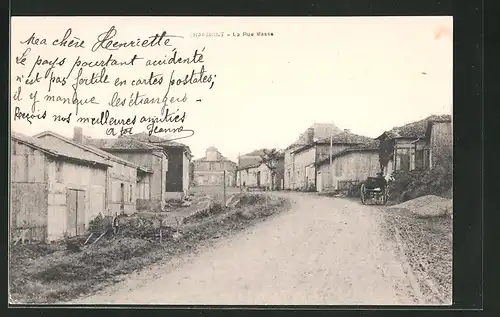 CHAUMONT - La Rue Basse
Ma chère Henriette
Le pays pourtant accidenté
n'est pas fertile en cartes postales,
il y manque les étrangers -
Reçois nos meilleures amitiés
Jeanne